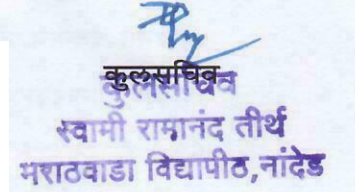 कुलसचिव
कुलसचिव
स्वामी रामानंद तीर्थ
मराठवाडा विद्यापीठ,नांदेड